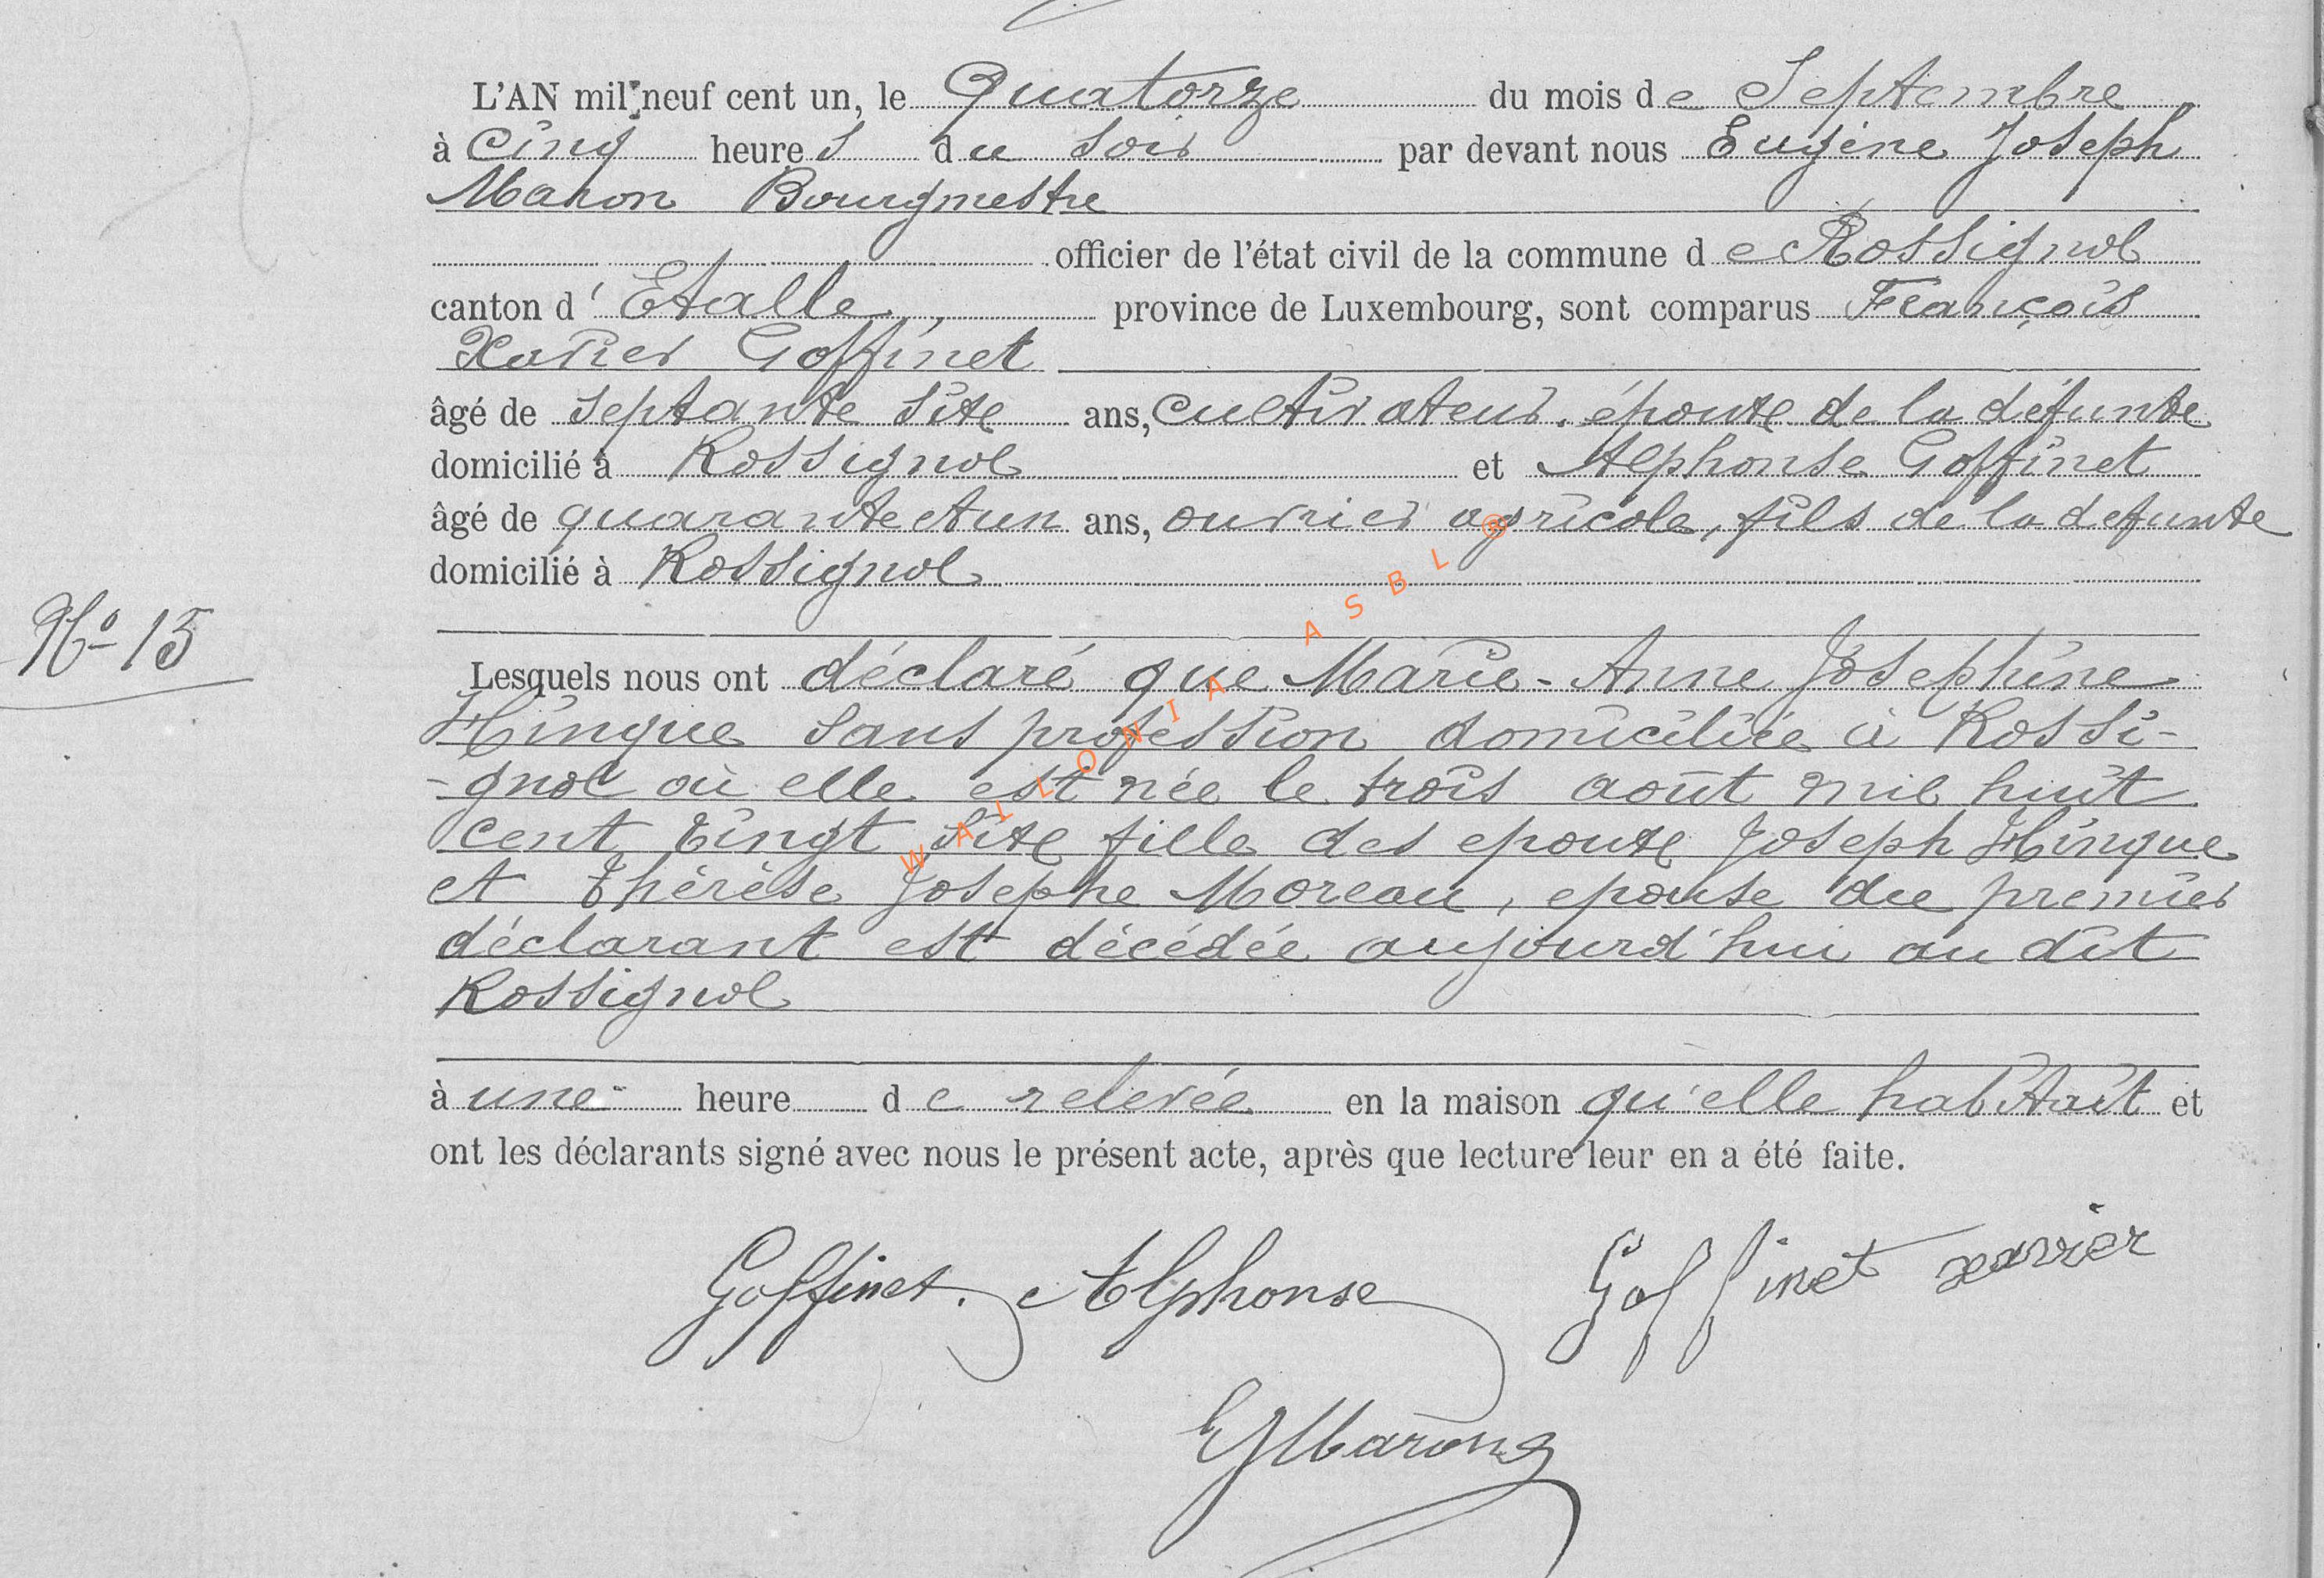 L'AN mil neuf cent un, le Quatorze du mois de Septembre
à cinq heures du soir par devant nous Eugène Joseph
Maron Bourgmestre
officier de l'état civil de la commune de Rossignol
canton d'Etalle, province de Luxembourg, sont comparus François
Xavier Goffinet
âgé de septante six ans, cultivateur, époux de la défunte
domicilié à Rossignol et Alphonse Goffinet
âgé de quarante et un ans, ouvrier agricole, fils de la defunte
domicilié à Rossignol
N° 15
Lesquels nous ont déclaré que Marie-Anne Josephine
Hinque sans profession domiciliée à Rossi-
-gnol où elle est née le trois août mil huit
cent vingt six fille des epoux Joseph Hinque
et thérèse Josephe Moreau, epouse du premier
déclarant est décédée aujourd'hui au dit
Rossignol
à une heure de relevée en la maison qu'elle habitait et
ont les déclarants signé avec nous le présent acte, après que lecture leur en a été faite.
Goffinet. Alphonse Goffinet xavier
EJMaron
WALLONIA ASBL ®